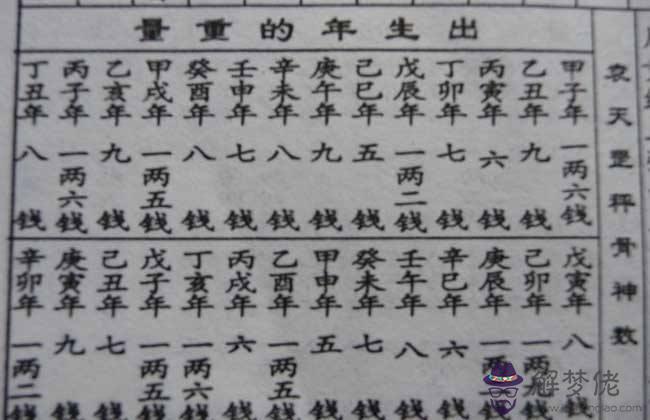 袁天罡秤骨神数
出生年的重量
甲子年 一两六钱
乙丑年 九钱
丙寅年 六钱
丁卯年 七钱
戊辰年 一两二钱
己巳年 五钱
庚午年 九钱
辛未年 八钱
壬申年 七钱
癸酉年 八钱
甲戌年 一两五钱
乙亥年 九钱
丙子年 一两六钱
丁丑年 八钱
戊寅年 八
己卯年 一两
庚辰年 一两
辛巳年 六钱
壬午年 八钱
癸未年 七钱
甲申年 五钱
乙酉年 一两五钱
丙戌年 六钱
丁亥年 一两六钱
戊子年 一两五钱
己丑年 七钱
庚寅年 九钱
辛卯年 一两二钱
解梦佬